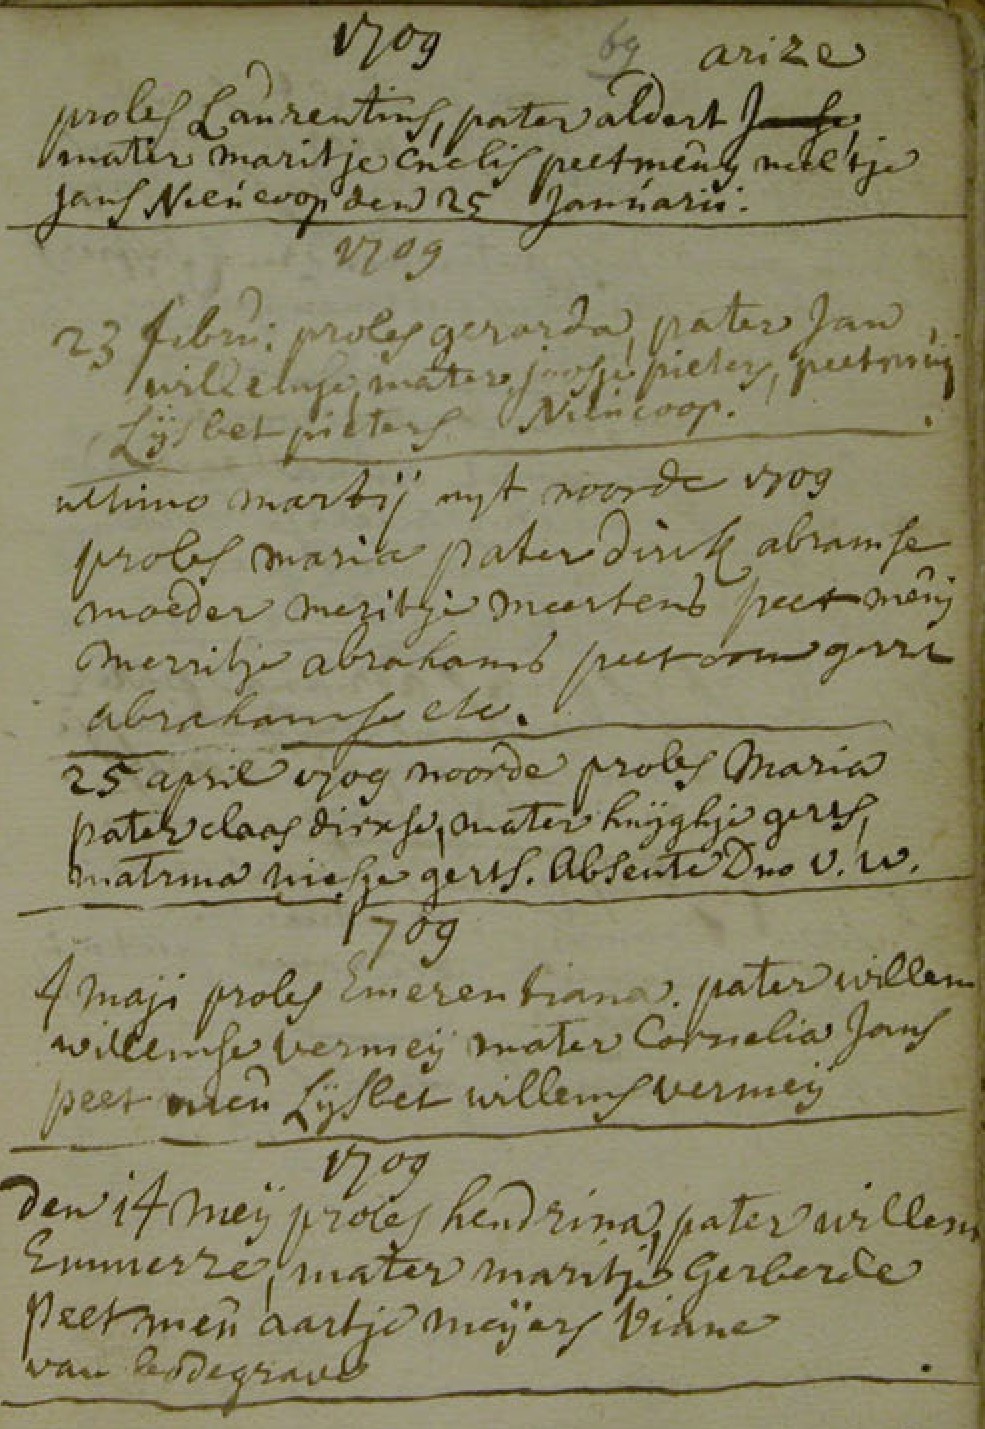 1709 69 arize
proles Laurentius, pater aldert Janse,
mater maritje Cnelis peetmeuy neeltje
Jans Nieucoop den 25 Januarii.
1709
23 febru: proles gerarda, pater Jan
willemse, mater joosje pieters, peetmuij
Lijsbet pieters Nieucoop.
ultimo martij uyt noorde 1709
proles maria pater dirck abramse
moeder meritje meertens peet meuij
Merritje abrahams peetoom gerrit
abrahamse etc.
25 april 1709 noorde proles Maria
pater claas dirxse, mater huijghje gerts,
matrina niesje gerts. Absente Dno V. W.
1709
4 maji proles Emerentiana. pater willem
willemse vermeij mater Cornelia Jans
peet meu Lijsbet willems vermeij
1709
den 14 meij proles hendrina, pater willem
Emmerre, mater maritje Gerberde
Peet meu aartje meijers Viane
van bodegrave